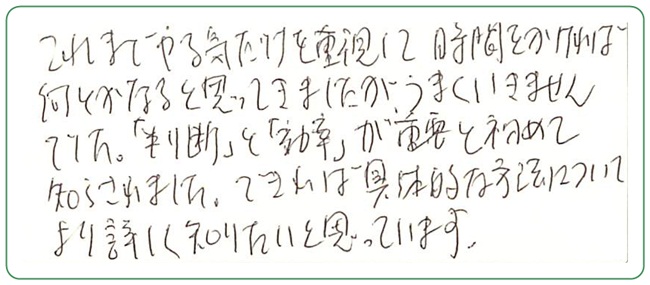 これまでやる気だけを重視して時間をかければ
何とかなると思ってきましたが、うまくいきません
でした。「判断」と「効率」が重要と初めて
知らされました。できれば具体的な方法について
より詳しく知りたいと思っています。